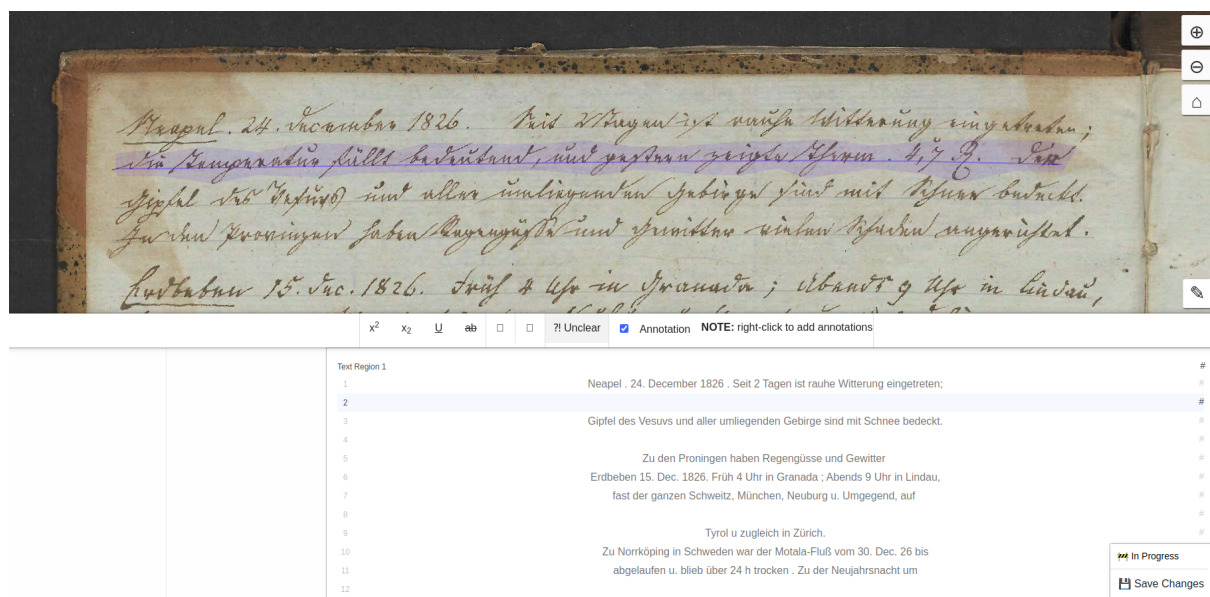 Neapel. 24. December 1826. Seit 2 Tagen ist rauhe Witterung eingetreten;
die Temperatur fällt bedeutend, und gestern zeigte Therm. 4,7 R. Der
Gipfel des Vesuvs und aller umliegenden Gebirge sind mit Schnee bedeckt.
In den Provinzen haben Regengüsse und Gewitter vielen Schaden angerichtet.
Erdbeben 15. Dec. 1826. Früh 4 Uhr in Granada; Abends 9 Uhr in Lindau,
x2 x2 U ab ?! Unclear Annotation NOTE: right-click to add annotations
Text Region 1 #
1 Neapel . 24. December 1826 . Seit 2 Tagen ist rauhe Witterung eingetreten; #
2 #
3 Gipfel des Vesuvs und aller umliegenden Gebirge sind mit Schnee bedeckt. #
4 #
5 Zu den Proningen haben Regengüsse und Gewitter #
6 Erdbeben 15. Dec. 1826. Früh 4 Uhr in Granada ; Abends 9 Uhr in Lindau, #
7 fast der ganzen Schweitz, München, Neuburg u. Umgegend, auf #
8 #
9 Tyrol u zugleich in Zürich. #
10 Zu Norrköping in Schweden war der Motala-Fluß vom 30. Dec. 26 bis
11 abgelaufen u. blieb über 24 h trocken . Zu der Neujahrsnacht um
12
In Progress
Save Changes